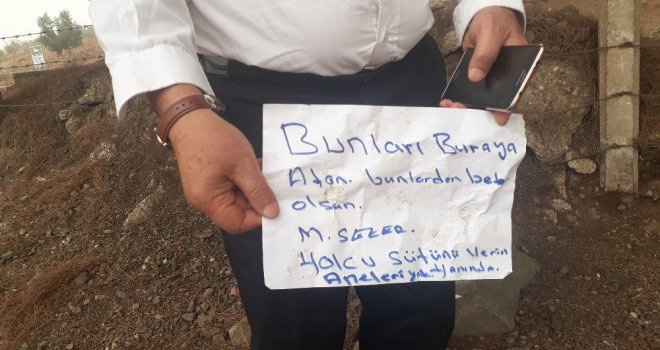 Bunları Buraya
Atan. bunlardan bete
olsun.
M. SEZER.
Yolcu sütünü verin
Aneleri yok Yanında.